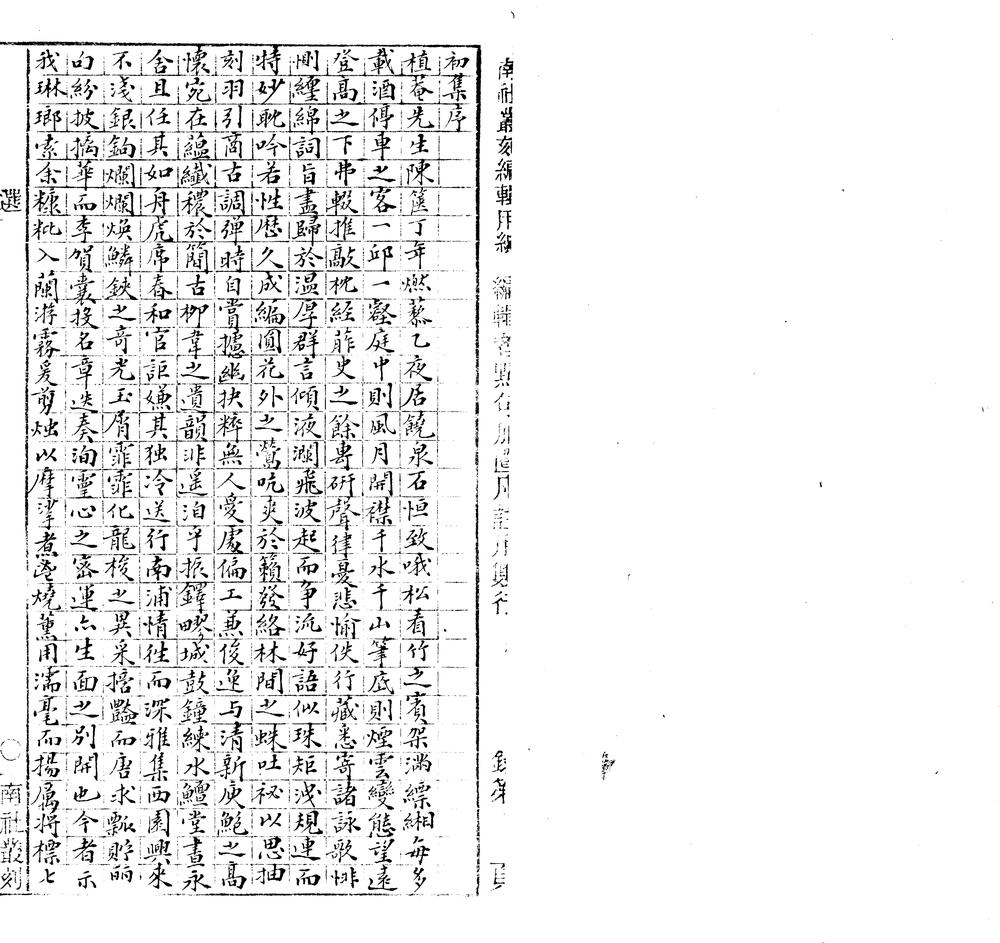 南社叢刻編輯用紙
初集序
植菴先生陳篋丁年燃藜乙夜居饒泉石恒致哦松看竹之賓架滿縹緗每多
載酒停車之客一邱一壑庭中則風月開襟千水千山筆底則煙雲變態望遠
登高之下弗輟推敲枕經葄史之餘專研聲律憂悲愉佚行藏悉寄諸詠歌悱
惻纏綿詞旨盡歸於溫厚群言傾液瀾飛波起而争流好語似珠矩洩規連而
特妙耽吟若性歷久成編圓花外之鶯吭爽於籟發絡林間之蛛吐祕以思抽
刻羽引商古調彈時自賞攄幽抉粹無人愛處偏工兼俊逸与清新庾鮑之高
懷宛在蘊纖穠於簡古柳韋之遺韻非遥洎乎振鐸疁城鼓鐘練水鱣堂晝永
舍且任其如舟虎席春和官詎嫌其独冷送行南浦情徃而深雅集西園興來
不淺銀鉤爛爛煥鱗鋏之竒光玉屑霏霏化龍梭之異采搭豔而唐求瓢貯丽
句紛披摛華而李賀囊投名章迭奏洵靈心之密運亦生面之别開也今者示
我琳瑯索余糠粃入蘭游霧爰剪烛以摩挲煮盌燒薰用濡毫而揚厲將標七
選
南社叢刻